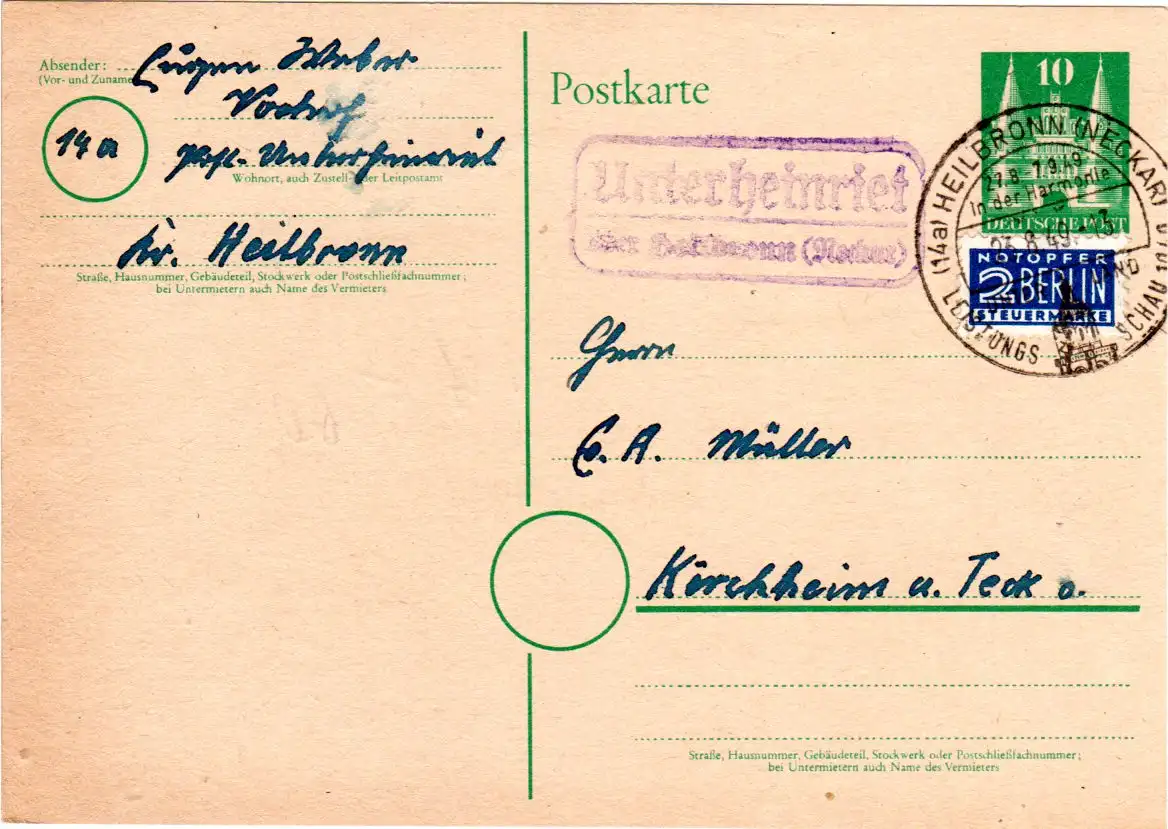 Absender:
(Vor- und Zuname
Eugen Weber
Vorhof
14a
Post- Unterheinriet
Wohnort, auch Zustell- oder Leitpostamt
Kr. Heilbronn
Straße, Hausnummer, Gebäudeteil, Stockwerk oder Postschließfachnummer;
bei Untermietern auch Name des Vermieters
Postkarte
Unterheinriet
über Heilbronn (Neckar)
10
DEUTSCHE POST
(14a) HEILBRONN (NECKAR)
1949
in der Harmonie
23.8.49-13
LEISTUNGS SCHAU
NOTOPFER
2 BERLIN
STEUERMARKE
Herrn
E. A. Müller
Kirchheim u. Teck
Straße, Hausnummer, Gebäudeteil, Stockwerk oder Postschließfachnummer;
bei Untermietern auch Name des Vermieters